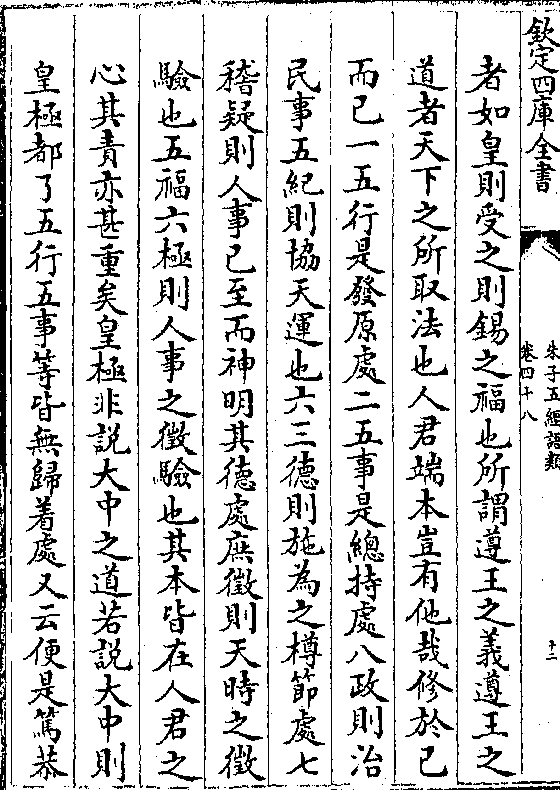 欽定四庫全書
朱子五經語類
卷四十八
十二
者如皇則受之則錫之福也所謂遵王之義遵王之
道者天下之所取法也人君端本豈有他哉修於己
而已一五行是發原處二五事是總持處八政則治
民事五紀則協天運也六三德則施為之樽節處七
稽疑則人事已至而神明其德處庶徵則天時之徵
驗也五福六極則人事之徵驗也其本皆在人君之
心其責亦甚重矣皇極非說大中之道若說大中則
皇極都了五行五事等皆無歸着處又云便是篤恭